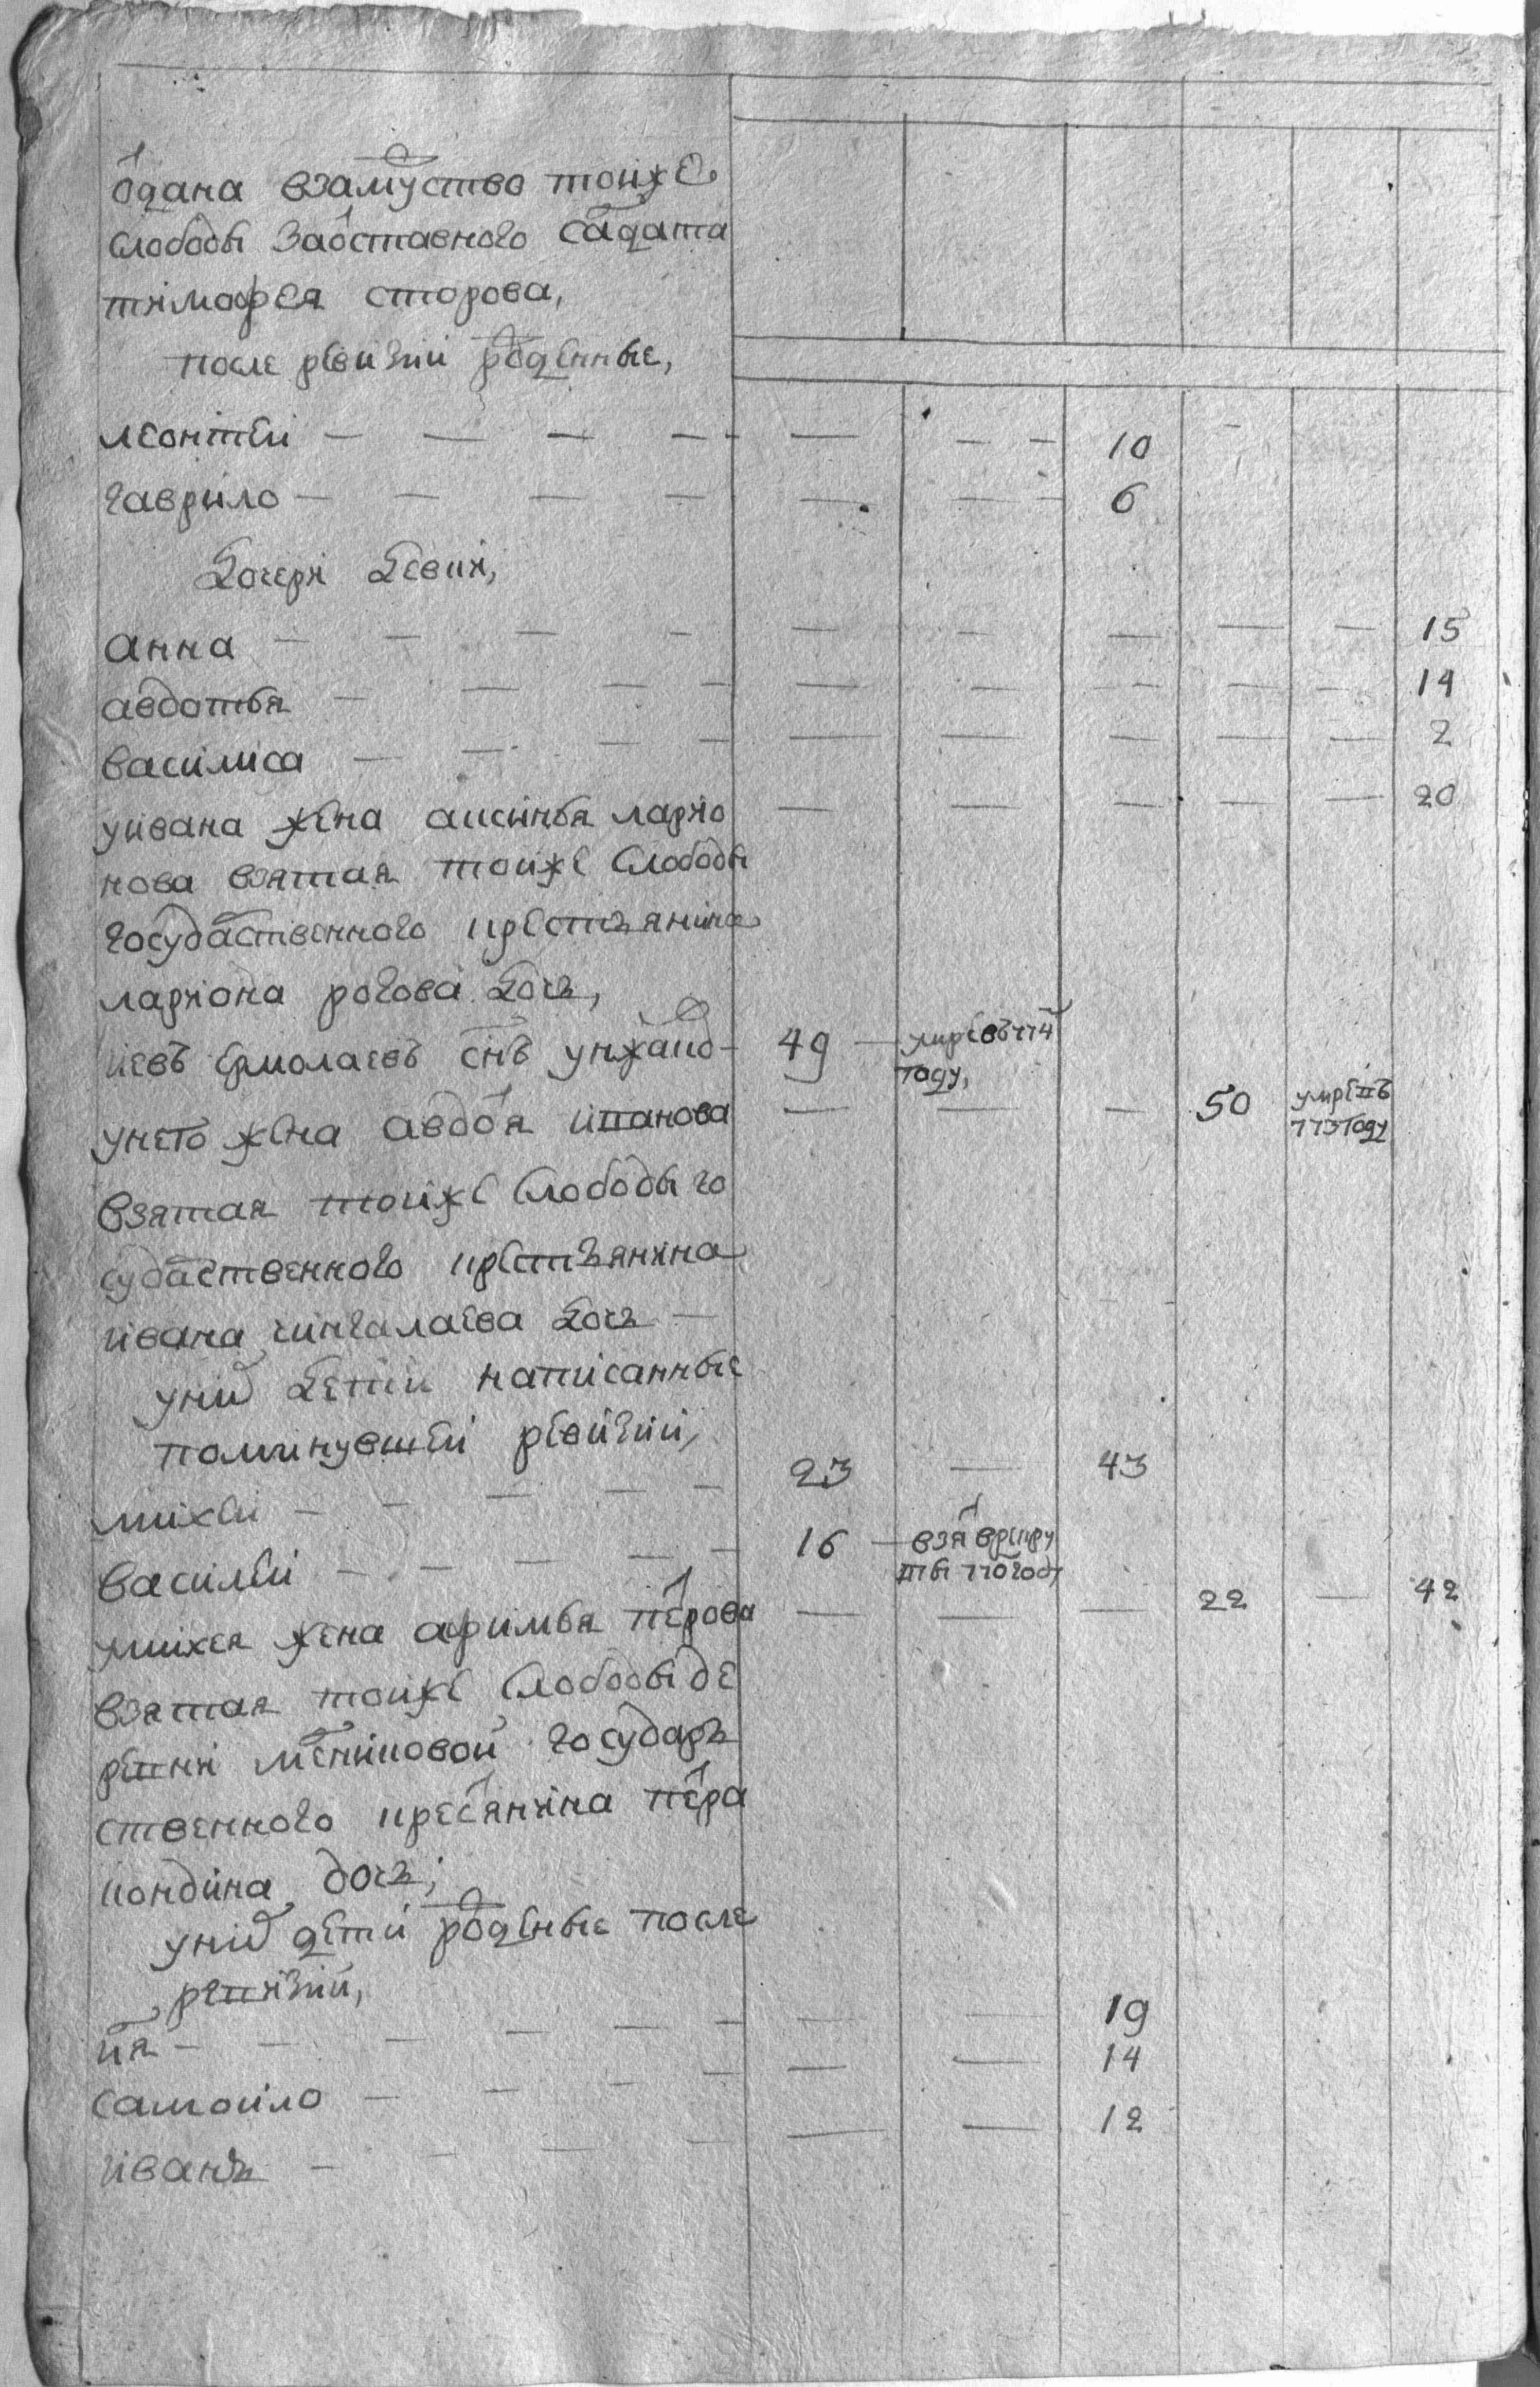 одана взамуство тойже
слободы заоставного садата
тимофея сторова,
после ревизии роденные,
леонтей — — — — — — — 10
гаврило — — — — — — — 6
дочери девки,
анна — — — — — — — — — 15
авдотья — — — — — — — — — 14
василиса — — — — — — — — — 2
уивана жена аксинья ларио — — — — — 20
нова взятая тойже слободы
государственного крестьянина
лариона рогова дочь,
иевъ ермолаевъ снъ 49 — умревъ774
году,
унего жена авдоя иванова — — — 50 умревъ
773году
взятая тойже слободы го
сударственного крестьянина
ивана чингалаева дочь —
уних дети написанные
поминувшей ревизии,
михей — — — — — 23 — 43
василей — — — — 16 — взя врекру
ты 770году
умихея жена афимья перова — — — 22 — 42
взятая тойже слободы де
ревни государь
ственного кресянина пера
кондина дочь,
уних дети роденые после
ревизии,
ия — — — — — — — 19
самойло — — — — — — 14
иванъ — — — — — — 12